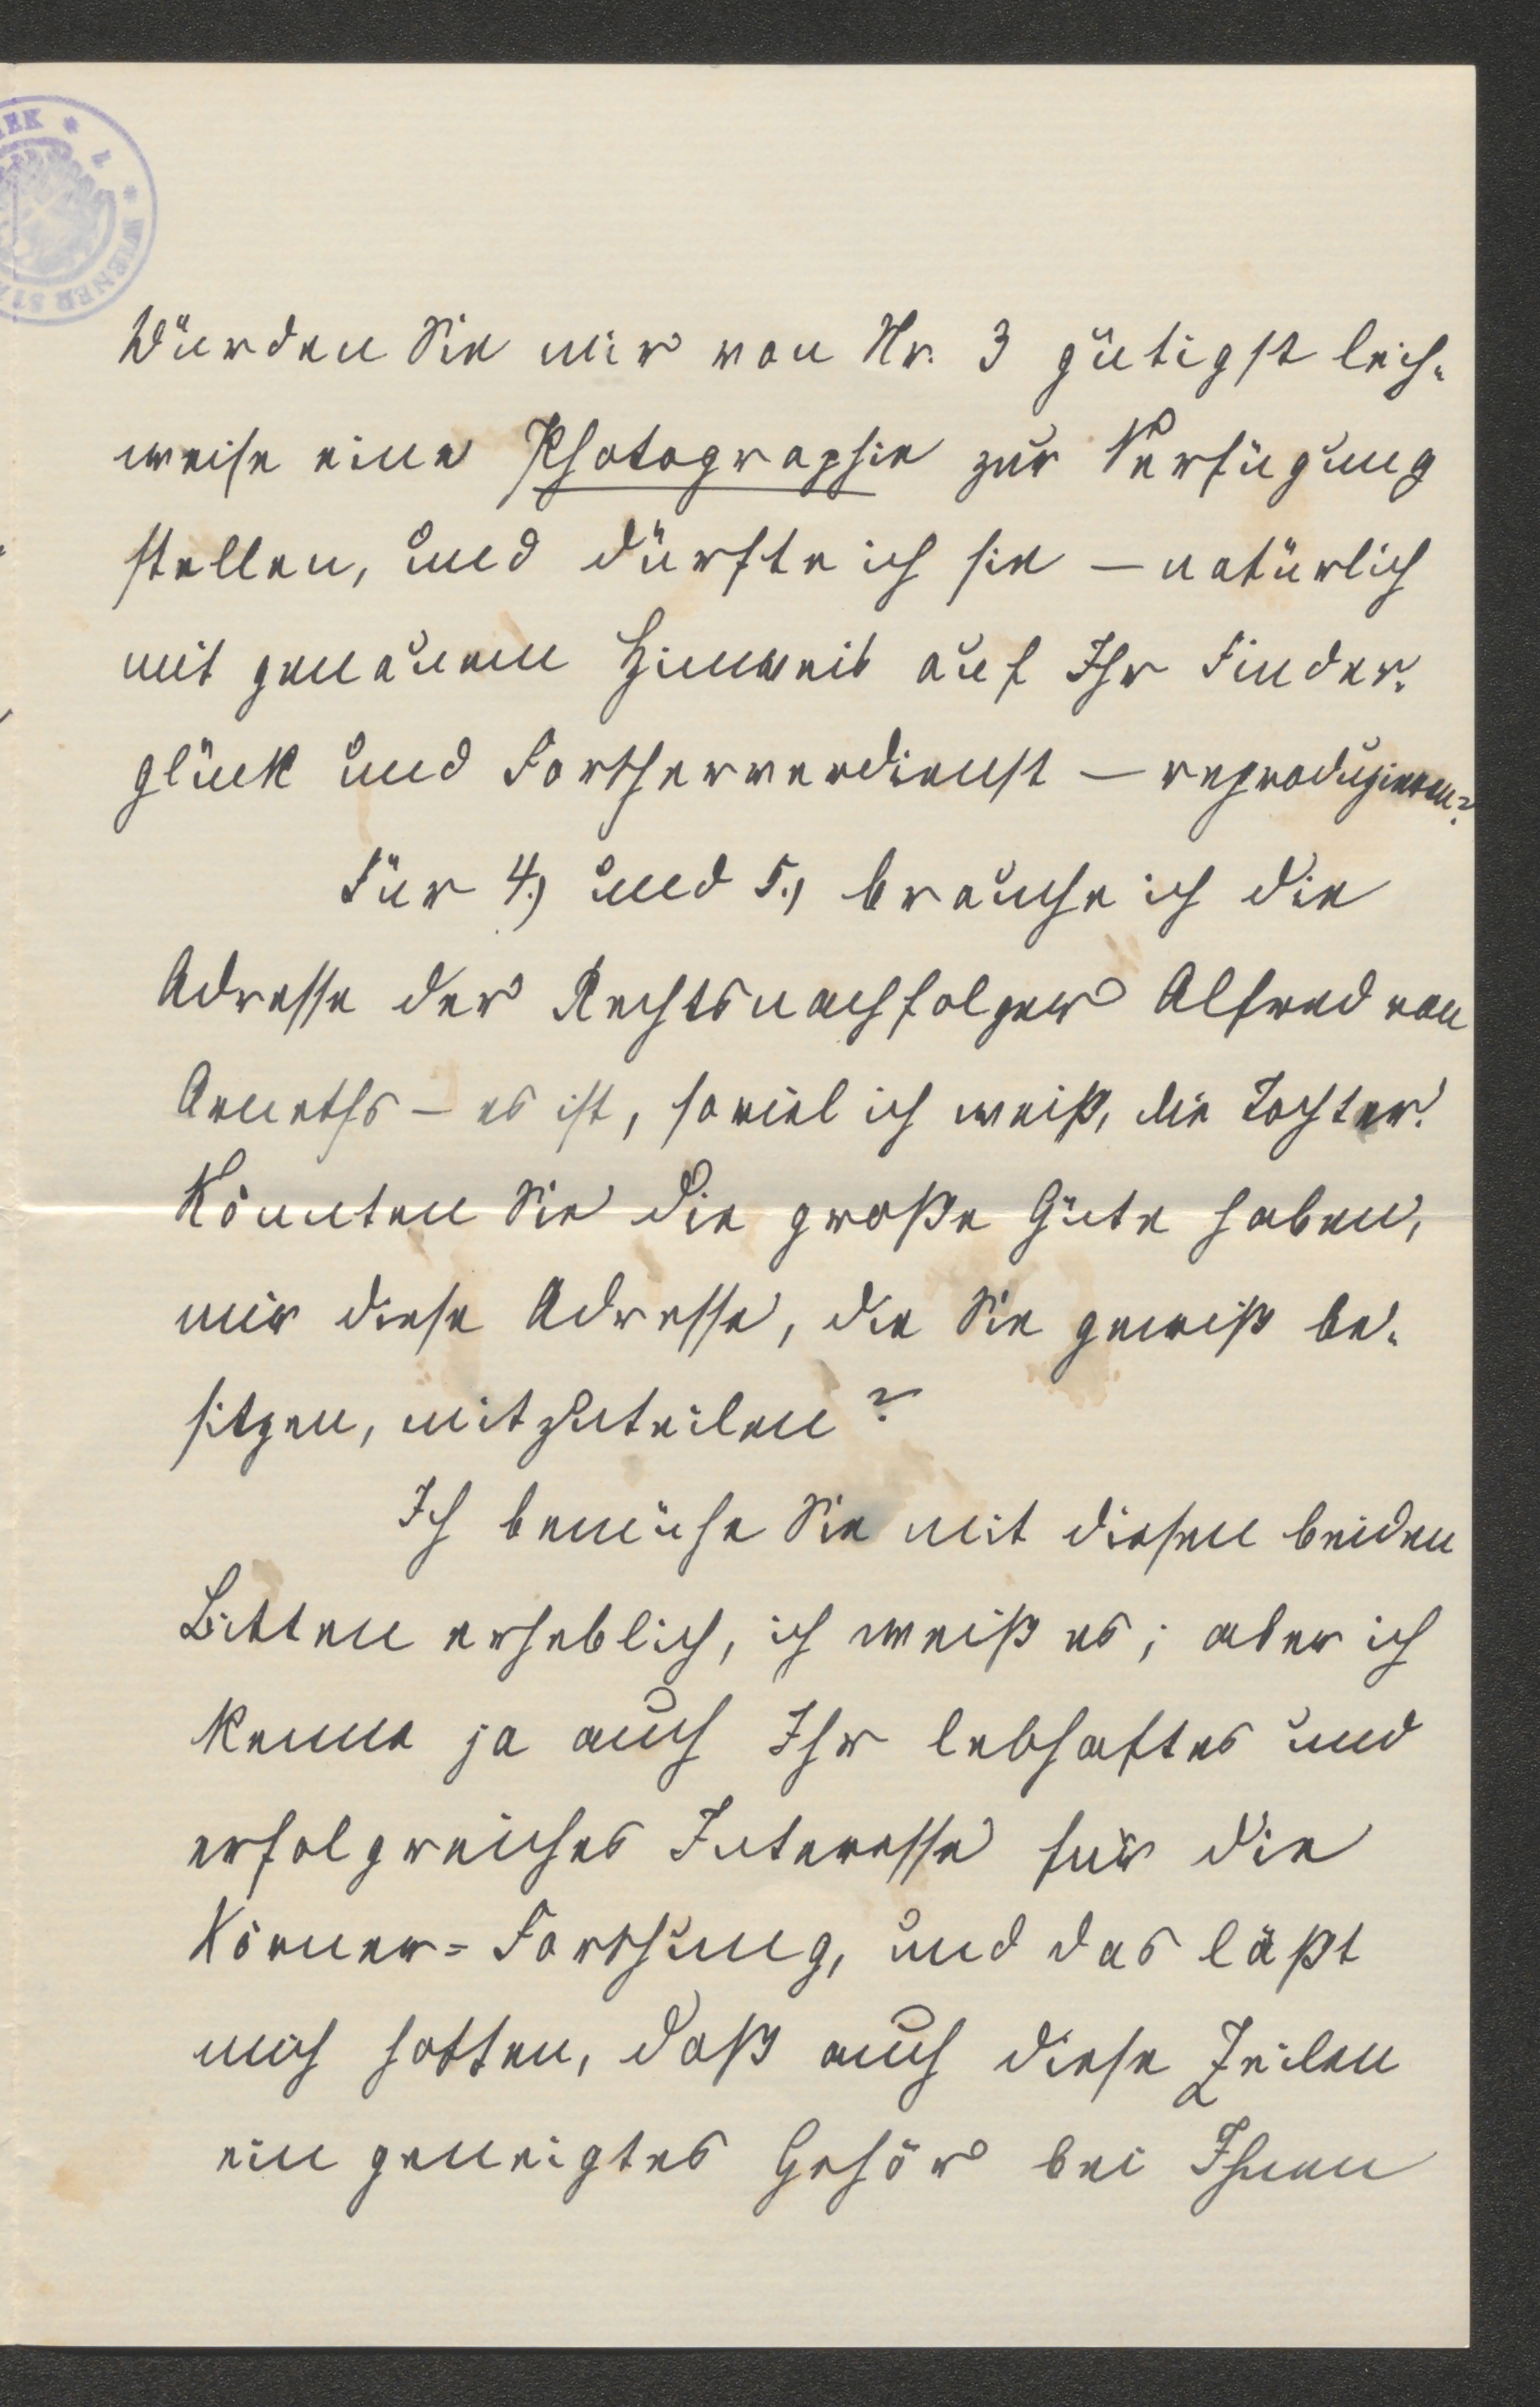 Würden Sie mir von Nr. 3 gütigst leih-
weise eine Photographie zur Verfügung
stellen, und dürfte ich sie – natürlich
mit genauem Hinweis auf Ihr Finder-
glück und Forscherverdienst – reproduzieren?
Für 4.) und 5.) brauche ich die
Adresse der Rechtsnachfolger Alfred von
Arneths – es ist, soviel ich weiß, die Tochter.
Könnten Sie die große Güte haben,
mir diese Adresse, die Sie gewiß be-
sitzen, mitzuteilen?
Ich bemühe Sie mit diesen beiden
Bitten erheblich, ich weiß es; aber ich
kenne ja auch Ihr lebhaftes und
erfolgreiches Interesse für die
Körner-Forschung, und das läßt
mich hoffen, daß auch diese Zeilen
ein geneigtes Gehör bei Ihnen
WIENER